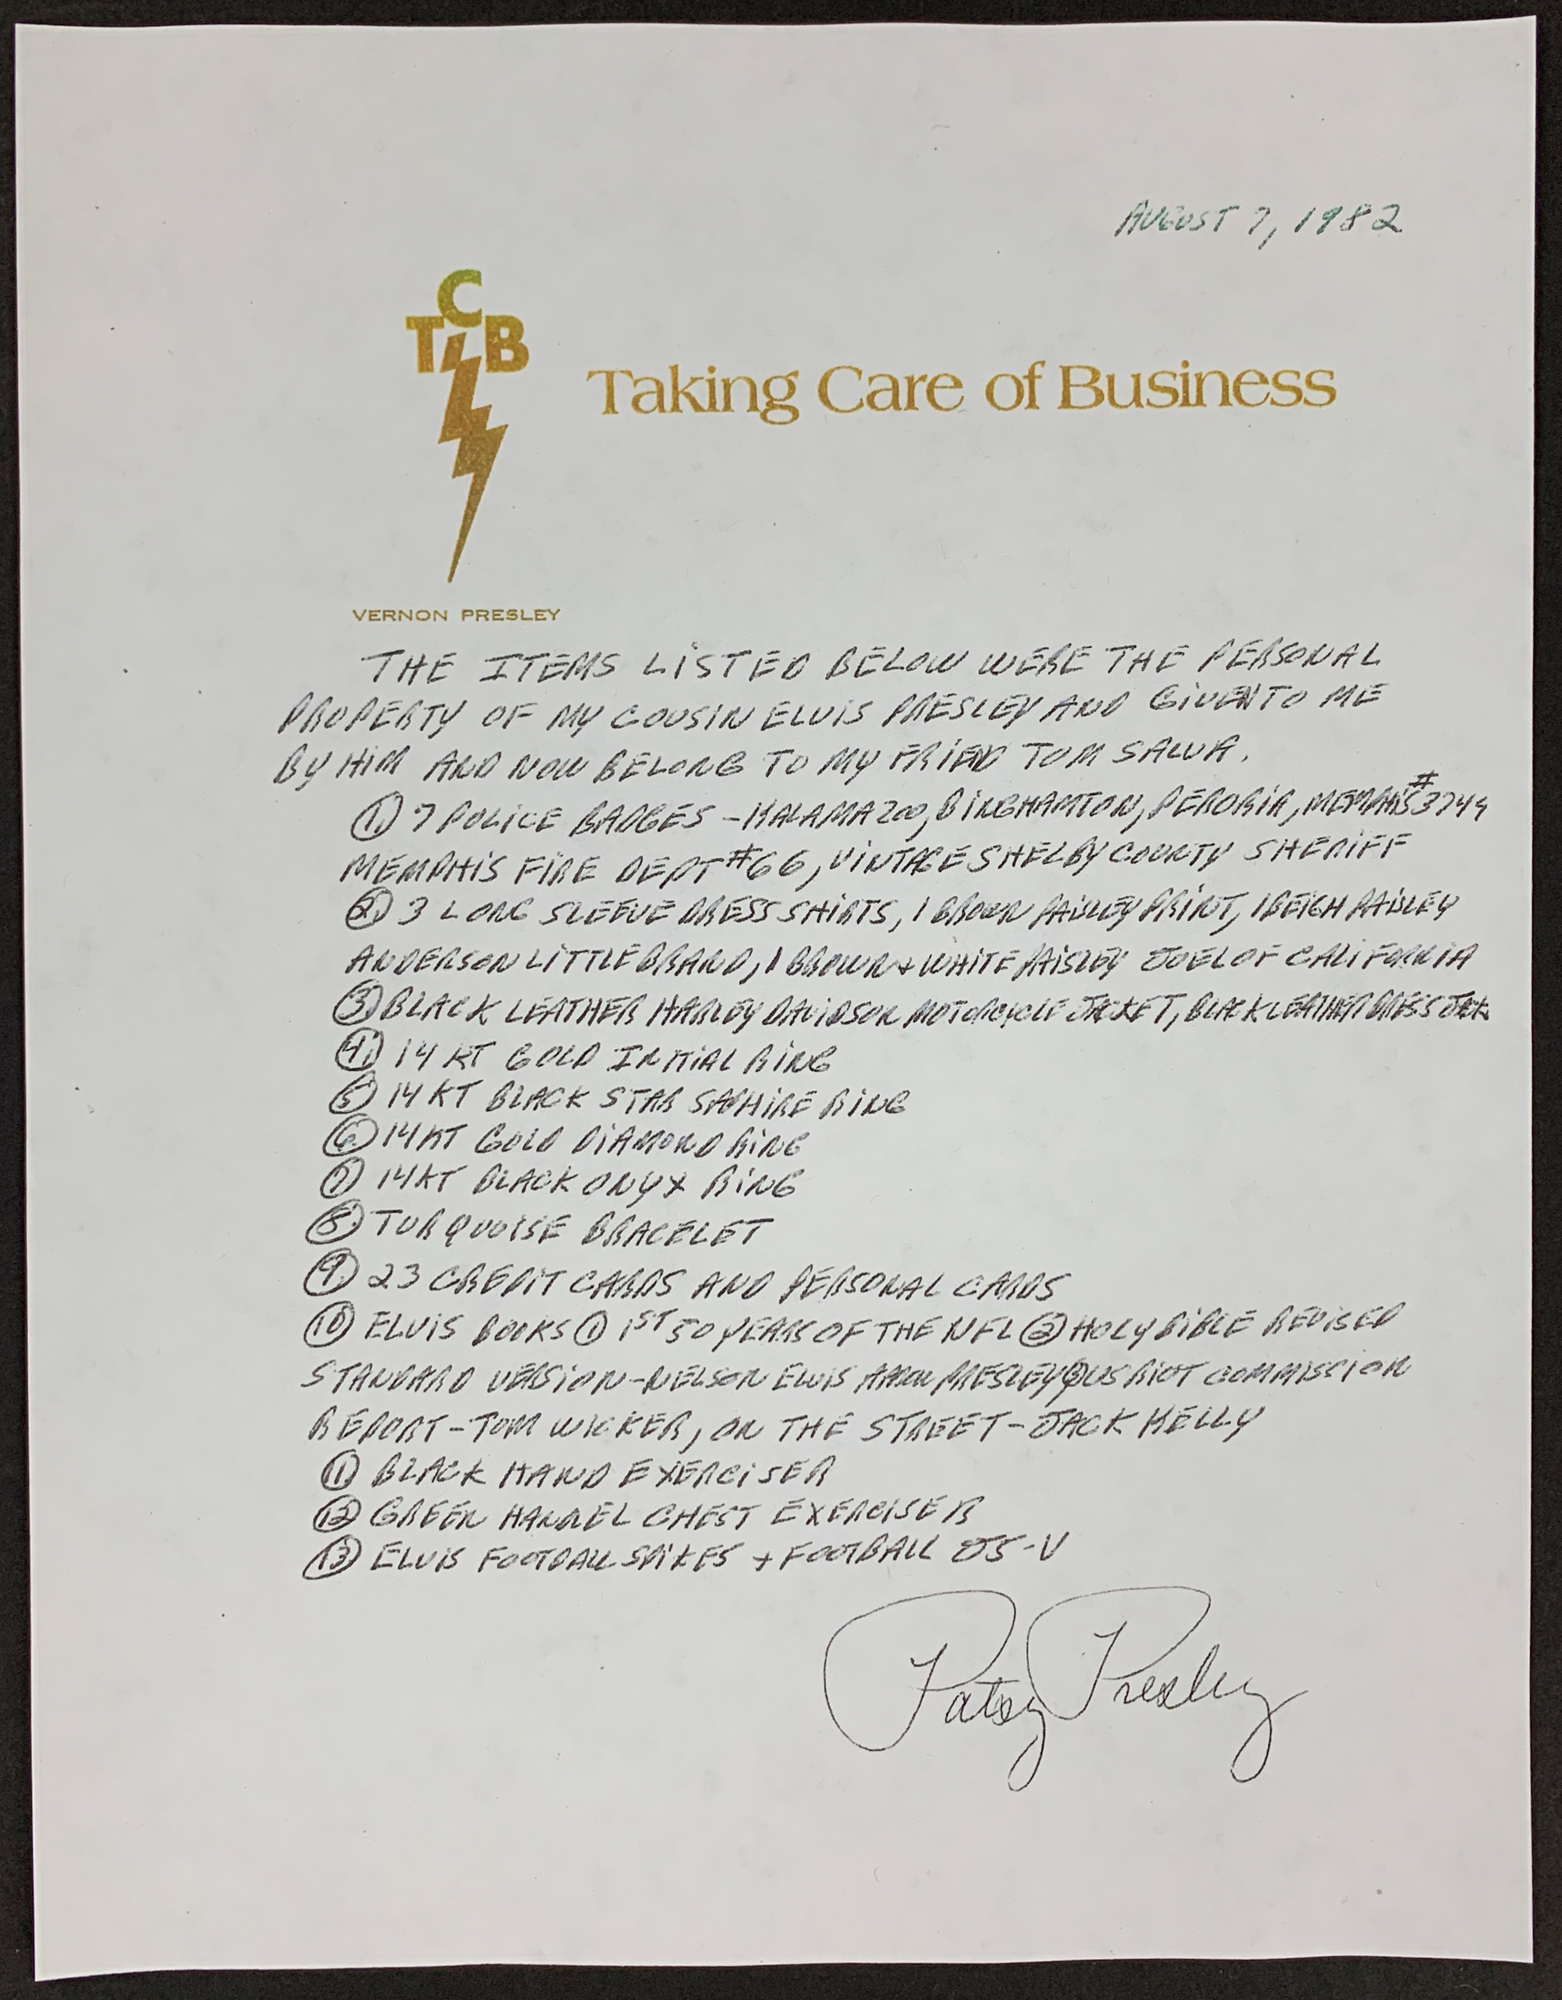 AUGUST 7, 1982
TCB
Taking Care of Business
VERNON PRESLEY
THE ITEMS LISTED BELOW WERE THE PERSONAL
PROPERTY OF MY COUSIN ELVIS PRESLEY AND GIVEN TO ME
BY HIM AND NOW BELONG TO MY FRIEND TOM SALVA.
1. 7 POLICE BADGES - KALAMAZOO, BINGHAMTON, PERORIA, MEMPHIS #3749
MEMPHIS FIRE DEPT #66, VINTAGE SHELBY COUNTY SHERIFF
2. 3 LONG SLEEVE DRESS SHIRTS, 1 BROWN PAISLEY PRINT, 1 BEIGH PAISLEY
ANDERSON LITTLE BRAND, 1 BROWN + WHITE PAISLEY JOEL OF CALIFORNIA
3. BLACK LEATHER HARLEY DAVIDSON MOTORCYCLE JACKET, BLACK LEATHER DRESS JACK
4. 14 KT GOLD INITIAL RING
5. 14 KT BLACK STAR SAPHIRE RING
6. 14 KT GOLD DIAMOND RING
7. 14 KT BLACK ONYX RING
8. TURQUOISE BRACELET
9. 23 CREDIT CARDS AND PERSONAL CARDS
10. ELVIS BOOKS 1 1ST 50 YEARS OF THE NFL 2 HOLY BIBLE REVISED
STANDARD VERSION - NELSON ELVIS AARON PRESLEY 3 US RIOT COMMISSION
REPORT - TOM WICKER, ON THE STREET - JACK KELLY
11. BLACK HAND EXERCISER
12. GREEN CHEST EXERCISER
13. ELVIS FOOTBALL SPIKES + FOOTBALL J5-V
Patsy Presley